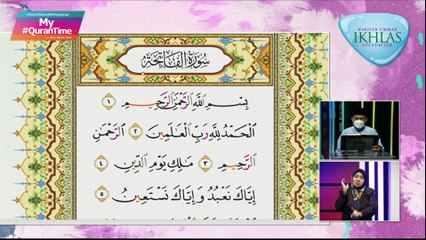 My
#QuranTime
WARISAN UMMAH
IKHLAS
FOUNDATION
سُورَةُ الْفَاتِحَةِ
بِسْمِ اللَّهِ الرَّحْمَٰنِ الرَّحِيمِ ١
الْحَمْدُ لِلَّهِ رَبِّ الْعَالَمِينَ ٢ الرَّحْمَٰنِ
الرَّحِيمِ ٣ مَالِكِ يَوْمِ الدِّينِ ٤
إِيَّاكَ نَعْبُدُ وَإِيَّاكَ نَسْتَعِينُ ٥